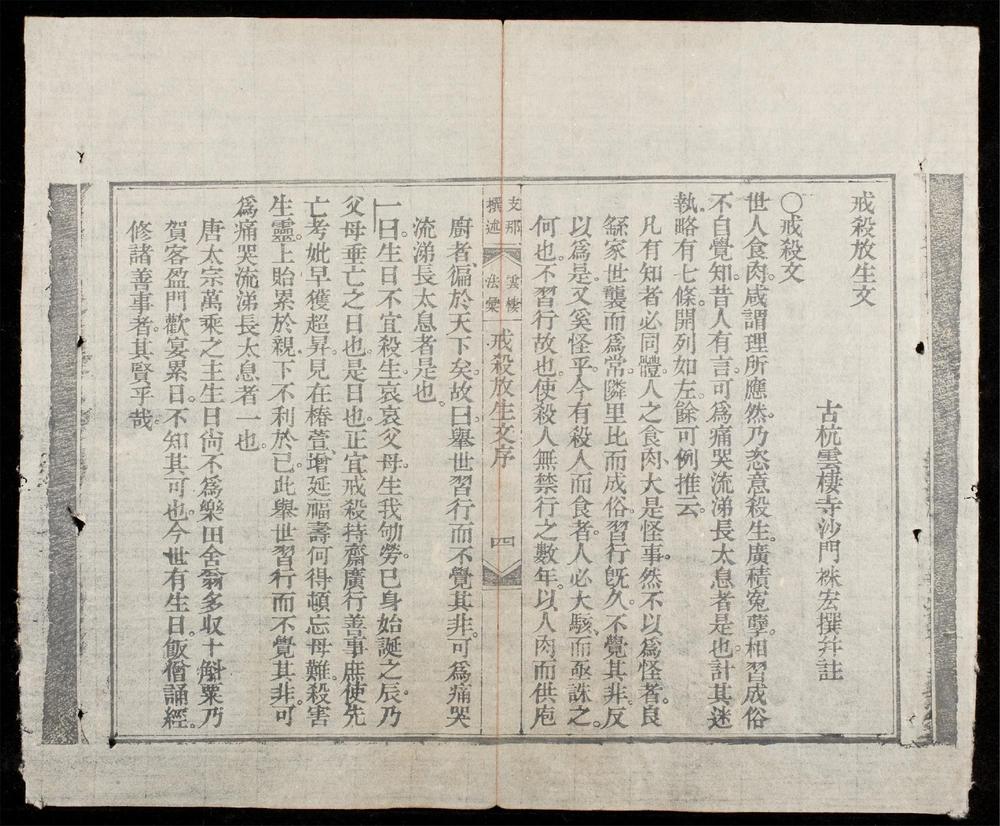 戒殺放生文
古杭雲棲寺沙門袾宏撰幷註
○戒殺文
世人食肉。咸謂理所應然。乃恣意殺生。廣積寃孽。相習成俗
不自覺知。昔人有言。可爲痛哭流涕長太息者是也。計其迷
執。略有七條。開列如左。餘可例推云。
凡有知者必同體。人之食肉、大是怪事。然不以爲怪者。良
繇家世襲而爲常。隣里比而成俗。習行旣久。不覺其非。反
以爲是。又奚怪乎。今有殺人而食者。人必大駭、而亟誅之。
何也。不習行故也。使殺人無禁。行之數年。以人肉而供庖
支那撰述
雲棲法彙
戒殺放生文序
四
廚者、徧於天下矣。故曰。舉世習行而不覺其非。可爲痛哭
流涕長太息者是也。
一曰。生日不宜殺生。哀哀父母。生我劬勞。已身始誕之辰。乃
父母垂亡之日也。是日也。正宜戒殺持齋。廣行善事。庶使先
亡考妣、早獲超昇。見在椿萱、增延福壽。何得頓忘母難。殺害
生靈。上貽累於親。下不利於己。此舉世習行而不覺其非。可
爲痛哭流涕長太息者一也。
唐太宗萬乘之主。生日尙不爲樂。田舍翁多収十斛粟。乃
賀客盈門。歡宴累日。不知其可也。今世有生日。飯僧誦經。
修諸善事者。其賢乎哉。